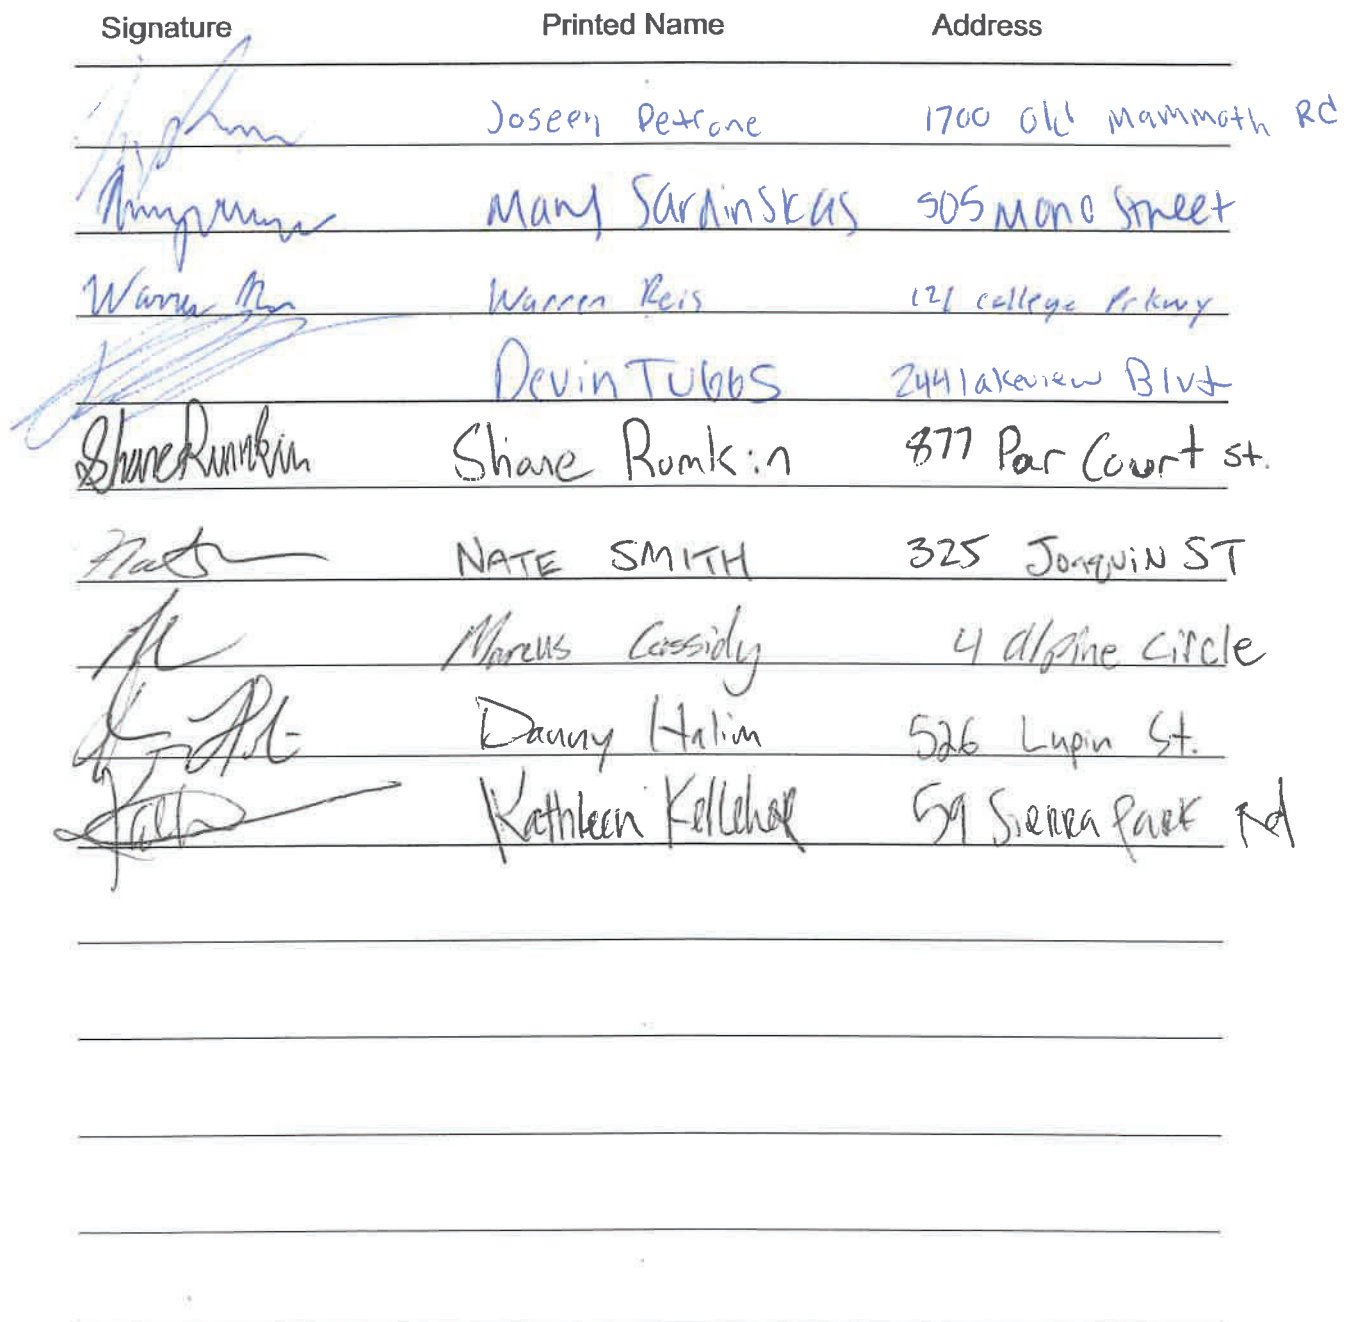 Signature Printed Name Address
Joseph Petrone 1700 Old Mammoth Rd
Mary Sardinskas 505 Mono Street
Warren Reis 121 college Prkwy
Devin Tubbs 244 lakeview Blvd
Shane Rumkin Shane Romkin 877 Par Court St.
NATE SMITH 325 JoaquiN ST
Marcus Cassidy 4 alpine circle
Danny Halim 526 Lupin St.
Kathleen Kelleher 59 Sierra Park Rd